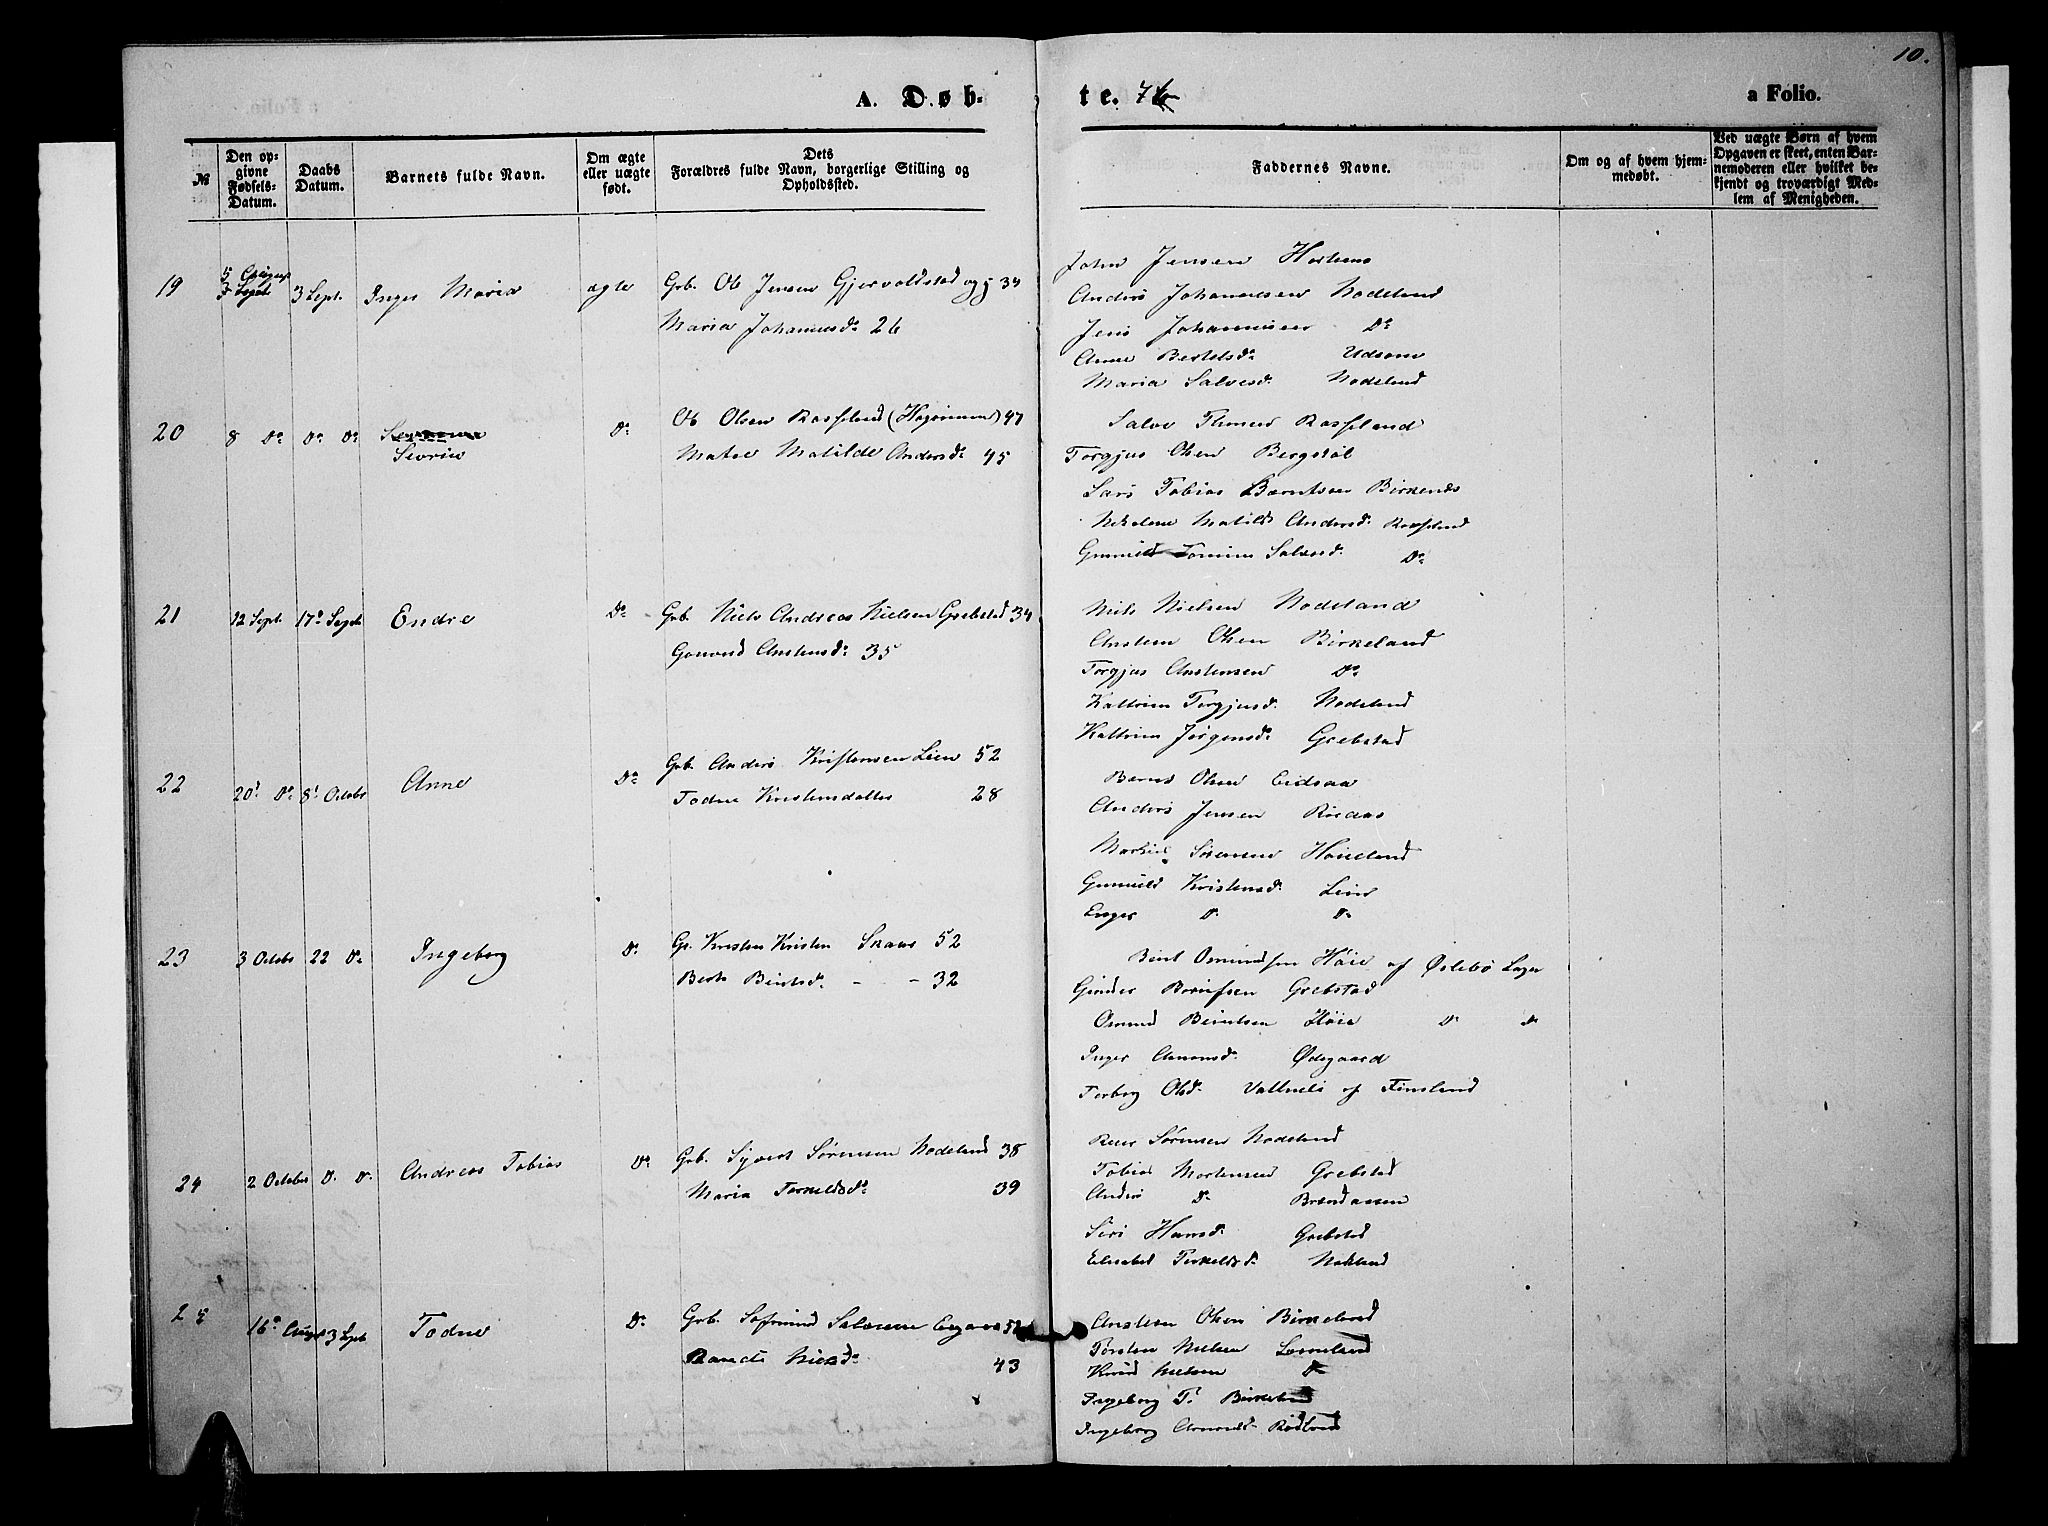 10.
A. Døb-
te. 76
a Folio.
№
Den op-
givne
Fødsels-
Datum.
Daabs
Datum.
Barnets fulde Navn.
Om ægte
eller uægte
født.
Dets
Forældres fulde Navn, borgerlige Stilling og
Opholdssted.
Faddernes Navne.
Om og af hvem hjem-
medøbt.
Ved uægte Børn af hvem
Opgaven er skeet, enten Bar-
nemoderen eller hvilket be-
kjendt og troværdigt Med-
lem af Menigheden.
19 3 Sept. 3 Sept. Inger Maria ægte Grb. Ole Jensen 34
Maria Johannesd. 26
John Jensen
Anders Johannesen Nodeland
Jens Johannesen Do
Anne Bertelsd.
Maria Salvesd. Nodeland
20 8 Do Do Do Severine Do Ole Olsen Rosseland 47
Matilde Andersd. 45
Salve Rosseland
Torgjus Olsen Bergstøl
Lars Tobias Berntsen Birkenes
Matild Andersd. Rosseland
Gunnild Salvesd. Do
21 12 Sept. 17de Sept Endre Do Grb. Niels Andreas Nielsen Grebstad 34
Gonvord Anstensd. 35
Niels Nielsen Nodeland
Ansten Olsen Birkeland
Torgjus Anstensen Do
Kattrine Torgjusd. Nodeland
Kattrine Jørgensd. Grebstad
22 20 Do 8 Octobr Anne Do Grb. Anders Kristensen Leien 52
Todne Kristensdatter 28
Bernt Olsen Eidsaa
Anders Jensen
Sørensen Høieland
Gunnild Kristensd. Leien
Enger D. D.
23 3 Octobr 22 D. Ingeborg D. Gr. Kristen Kristen Skaar 52
Berte Berntsd. - - 32
Bent Osmundsen Høie af Øslebø
Grebstad
Osmund Berntsen Høie D. D.
Inger Aanonsd. Ødegaard
Torborg Olsd. af Finsland
24 2 October D. D. Andreas Tobias Do Grb. Syvert Sørensen Nodeland 38
Maria Torkeldsd. 39
Sørensen Nodeland
Tobias Mortensen Grebstad
Anders D.
Siri Hansd. Grebstad
Elisabet Torkeldsd. Nodeland
25 16 Augs 3 Sept Todne Do Grb. Salvesen 52
43
Ansten Olsen Birkeland
Torsten Nielsen
Knud Nielsen D
Ingeborg T. Birkeland
Ingeborg Aanonsd.